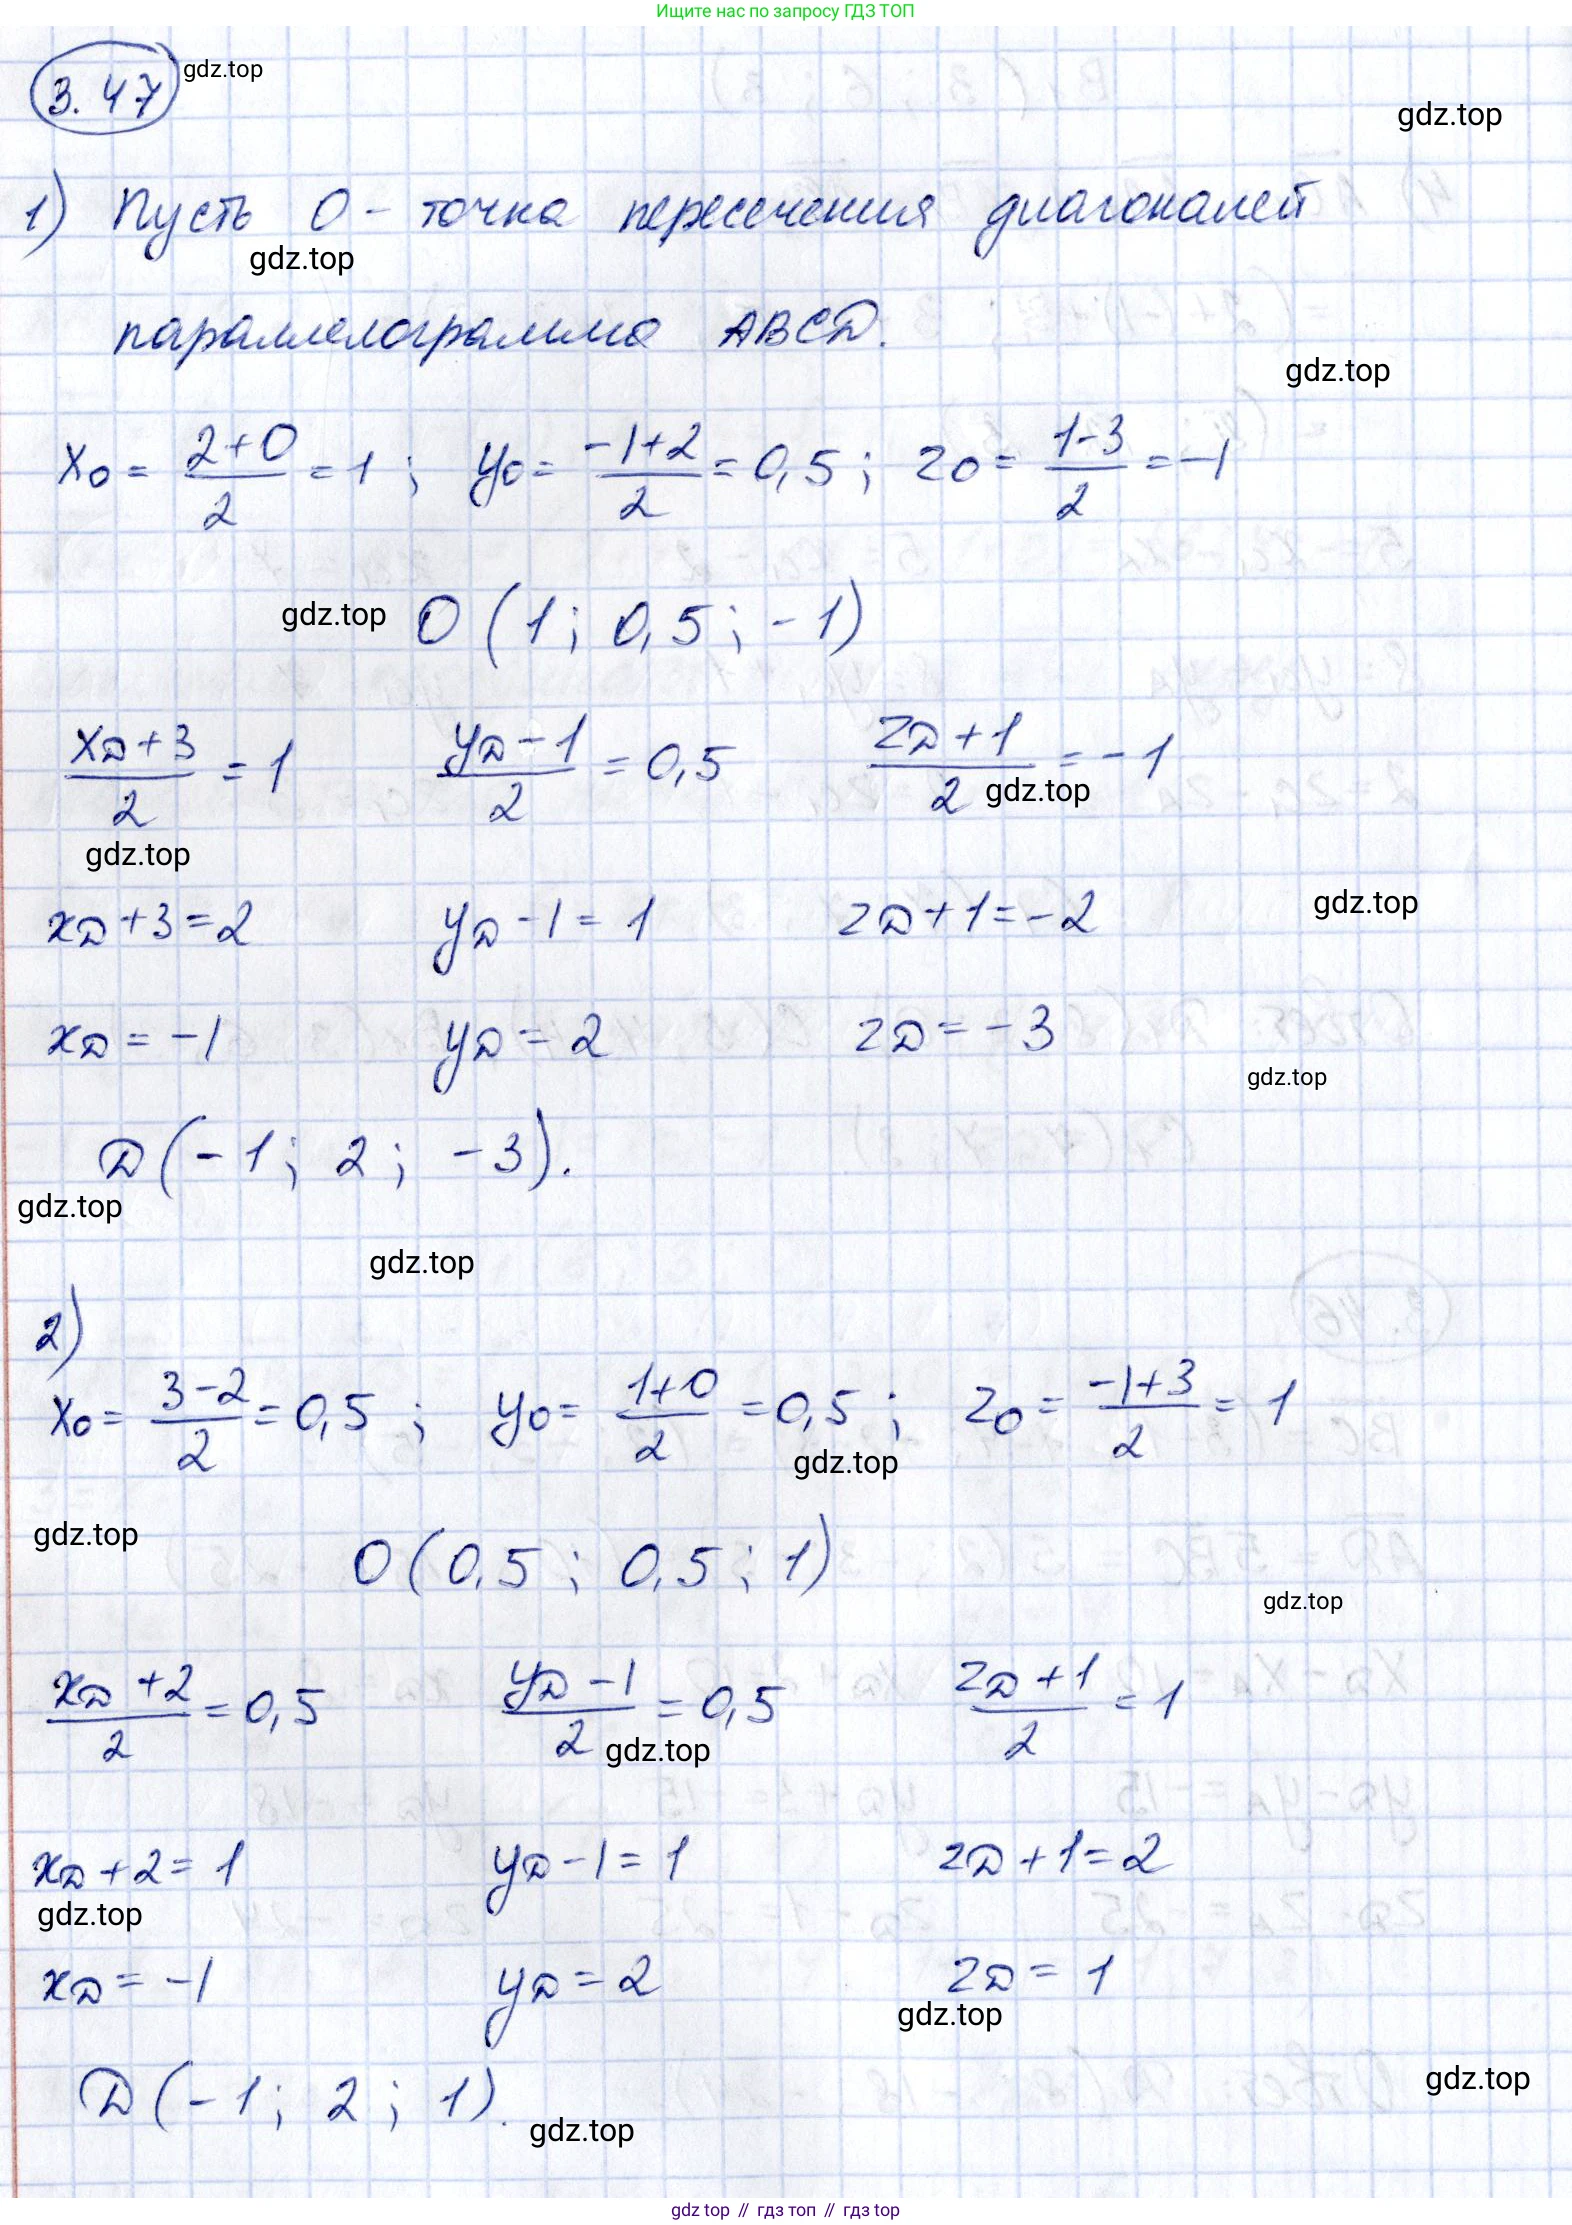 Ищите нас по запросу ГДЗ ТОП
3.47
gdz.top
gdz.top
1) Пусть O - точка пересечения диагоналей
gdz.top
параллелограмма ABCD.
gdz.top
x₀ = (2+0)/2 = 1 ; y₀ = (-1+2)/2 = 0,5 ; z₀ = (1-3)/2 = -1
gdz.top
O (1 ; 0,5 ; -1)
(x_D+3)/2 = 1 (y_D-1)/2 = 0,5 (z_D+1)/2 = -1
gdz.top
gdz.top
x_D+3=2 y_D-1=1 z_D+1=-2
gdz.top
x_D = -1 y_D = 2 z_D = -3
gdz.top
D (-1 ; 2 ; -3).
gdz.top
gdz.top
2)
x₀ = (3-2)/2 = 0,5 ; y₀ = (1+0)/2 = 0,5 ; z₀ = (-1+3)/2 = 1
gdz.top
gdz.top
O (0,5 ; 0,5 ; 1)
gdz.top
(x_D+2)/2 = 0,5 (y_D-1)/2 = 0,5 (z_D+1)/2 = 1
gdz.top
x_D+2=1 y_D-1=1 z_D+1=2
gdz.top
x_D = -1 y_D = 2 z_D = 1
gdz.top
D (-1 ; 2 ; 1).
gdz.top
gdz.top
gdz top // гдз топ // гдз top